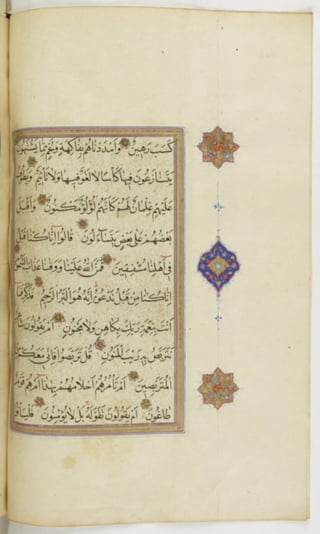 كَسَبَ رَهِينٌ وَأَمْدَدْنَاهُمْ بِفَاكِهَةٍ وَلَحْمٍ مِمَّا يَشْتَهُونَ
يَتَنَازَعُونَ فِيهَا كَأْسًا لَا لَغْوٌ فِيهَا وَلَا تَأْثِيمٌ وَيَطُوفُ
عَلَيْهِمْ غِلْمَانٌ لَهُمْ كَأَنَّهُمْ لُؤْلُؤٌ مَكْنُونٌ وَأَقْبَلَ
بَعْضُهُمْ عَلَى بَعْضٍ يَتَسَاءَلُونَ قَالُوا إِنَّا كُنَّا قَبْلُ
فِي أَهْلِنَا مُشْفِقِينَ فَمَنَّ اللَّهُ عَلَيْنَا وَوَقَانَا عَذَابَ السَّمُومِ
إِنَّا كُنَّا مِنْ قَبْلُ نَدْعُوهُ إِنَّهُ هُوَ الْبَرُّ الرَّحِيمُ فَذَكِّرْ فَمَا
أَنْتَ بِنِعْمَةِ رَبِّكَ بِكَاهِنٍ وَلَا مَجْنُونٍ أَمْ يَقُولُونَ شَاعِرٌ
نَتَرَبَّصُ بِهِ رَيْبَ الْمَنُونِ قُلْ تَرَبَّصُوا فَإِنِّي مَعَكُمْ مِنَ
الْمُتَرَبِّصِينَ أَمْ تَأْمُرُهُمْ أَحْلَامُهُمْ بِهَذَا أَمْ هُمْ قَوْمٌ
طَاغُونَ أَمْ يَقُولُونَ تَقَوَّلَهُ بَلْ لَا يُؤْمِنُونَ فَلْيَأْتُوا